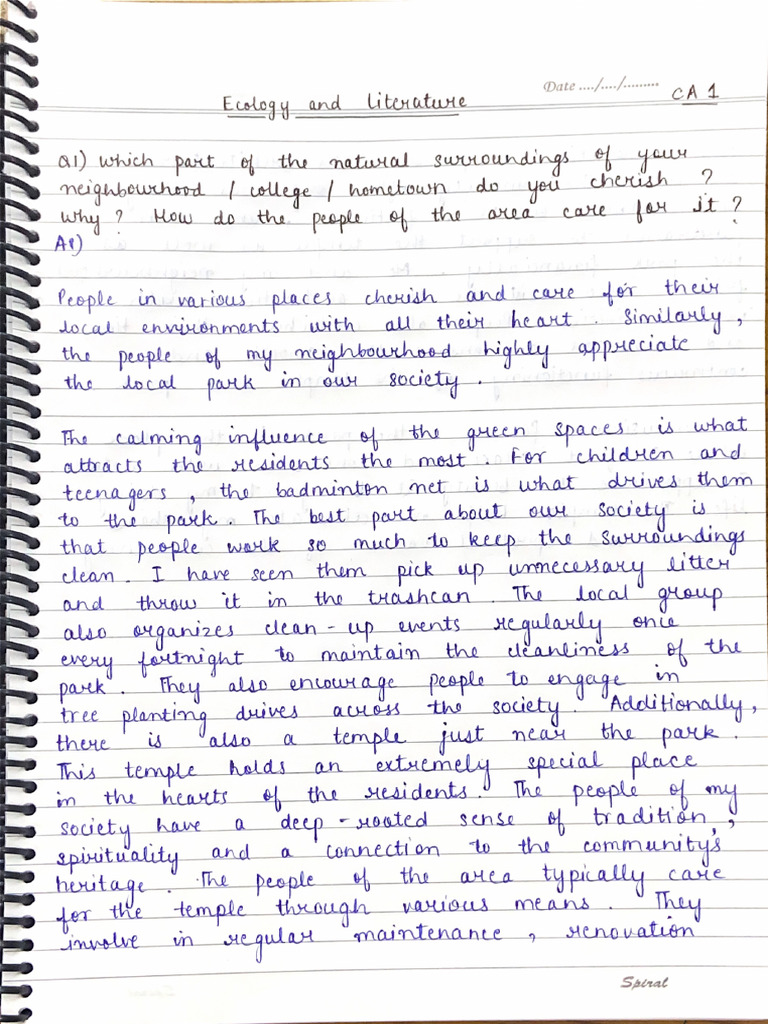 Date ..../..../.........
Ecology and literature
CA 1
Q1) which part of the natural surroundings of your
neighbourhood / college / hometown do you cherish ?
why ? How do the people of the area care for it ?
A1)
People in various places cherish and care for their
local environments with all their heart. Similarly,
the people of my neighbourhood highly appreciate
the local park in our society.
The calming influence of the green spaces is what
attracts the residents the most. For children and
teenagers, the badminton net is what drives them
to the park. The best part about our society is
that people work so much to keep the surroundings
clean. I have seen them pick up unnecessary litter
and throw it in the trashcan. The local group
also organizes clean-up events regularly once
every fortnight to maintain the cleanliness of the
park. They also encourage people to engage in
tree planting drives across the society. Additionally,
there is also a temple just near the park.
This temple holds an extremely special place
in the hearts of the residents. The people of my
society have a deep-rooted sense of tradition,
spirituality and a connection to the community's
heritage. The people of the area typically care
for the temple through various means. They
involve in regular maintenance, renovation
Spiral